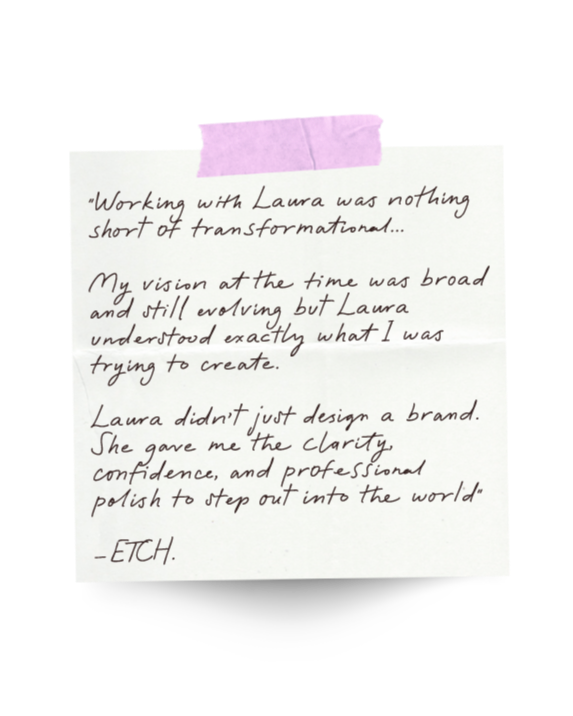 "Working with Laura was nothing
short of transformational...
My vision at the time was broad
and still evolving but Laura
understood exactly what I was
trying to create.
Laura didn't just design a brand.
She gave me the clarity,
confidence, and professional
polish to step out into the world"
-ETCH.